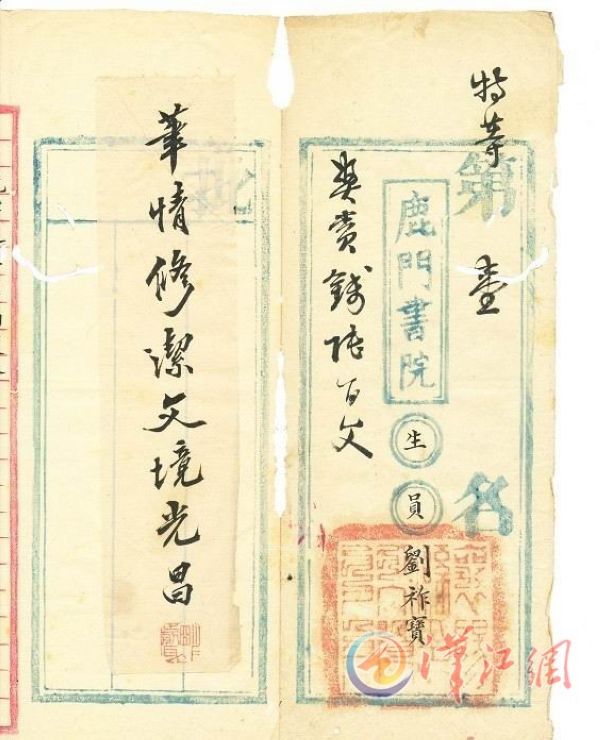 特等
第壹名
鹿門書院
生員劉祚寶
奬賞錢陸百文
筆情修潔文境光昌
漢江網